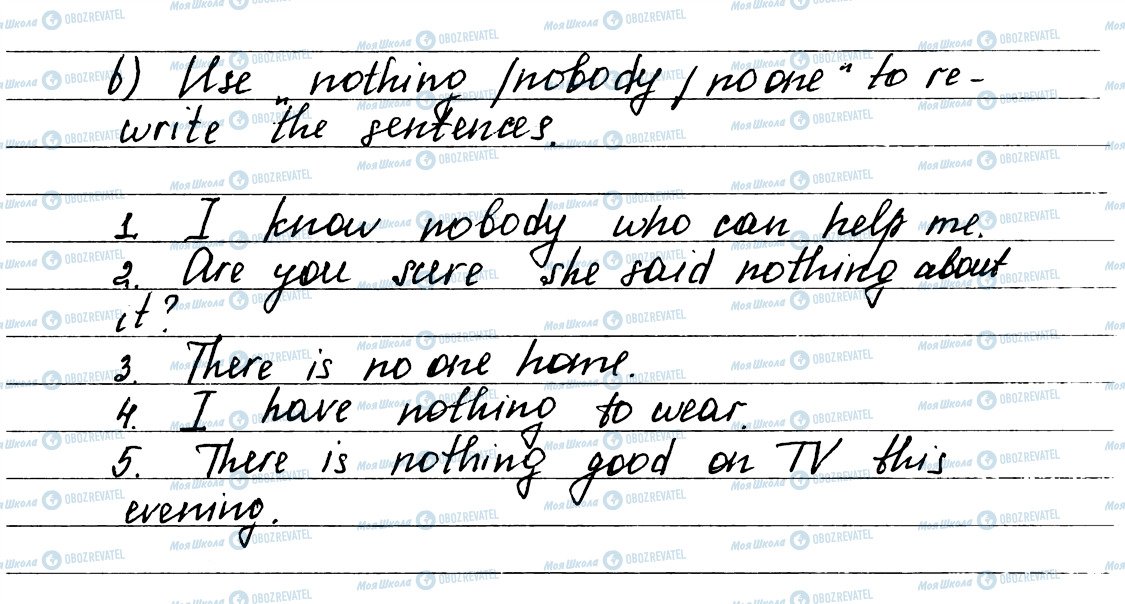 b) Use „nothing / nobody / no one" to re-
write the sentences.
1. I know nobody who can help me.
2. Are you sure she said nothing about
it?
3. There is no one home.
4. I have nothing to wear.
5. There is nothing good on TV this
evening.